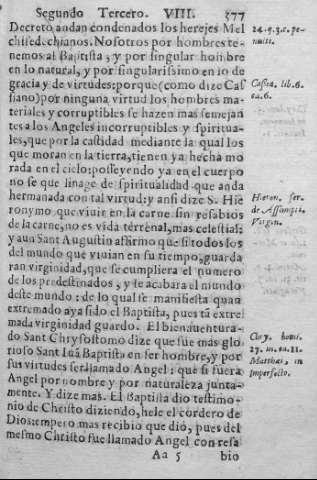 Segundo Tercero. VIII. 377
Decreto andan condenados los herejes Mel
chisedechianos. Nosotros por hombres te-
nemos al Baptista, y por singular hombre
en lo natural, y por singularissimo en lo de
gracia y de virtudes: porque (como dize Cas
siano) por ninguna virtud los hombres ma-
teriales y corruptibles se hazen mas semejan
tes a los Angeles incorruptibles y spiritua-
les, que por la castidad mediante la qual los
que moran en la tierra, tienen ya hecha mo
rada en el cielo: posseyendo ya en el cuerpo
no se que linage de spiritualidad que anda
hermanada con tal virtud: y ansi dize S. Hie
ronymo que viuir en la carne sin resabios
de la carne, no es vida terrenal, mas celestial:
y aun Sant Augustin affirmo que si todos los
del mundo que viuian en su tiempo, guarda
ran virginidad, que se cumpliera el numero
de los predestinados, y se acabara el mundo
deste mundo: de lo qual se manifiesta quan
extremado aya sido el Baptista, pues tā extre
mada virginidad guardo. El bienauentura-
do Sant Chrysostomo dize que fue mas glo
rioso Sant Iuā Baptista en ser hombre, y por
sus virtudes ser llamado Angel: que si fuera
Angel por nombre y por naturaleza junta-
mente. Y dize mas. El Baptista dio testimo-
nio de Christo diziendo, hele el cordero de
Dios: empero mas recibio que dio, pues del
mesmo Christo fue llamado Angel con resa
Aa 5 bio
24. q. 3. c.
Cassia. lib. 6.
ca. 6.
Hieron. ser.
de Assumpt.
Virgin.
Chry. homi.
27. in
Matthæi, in
imperfecto.